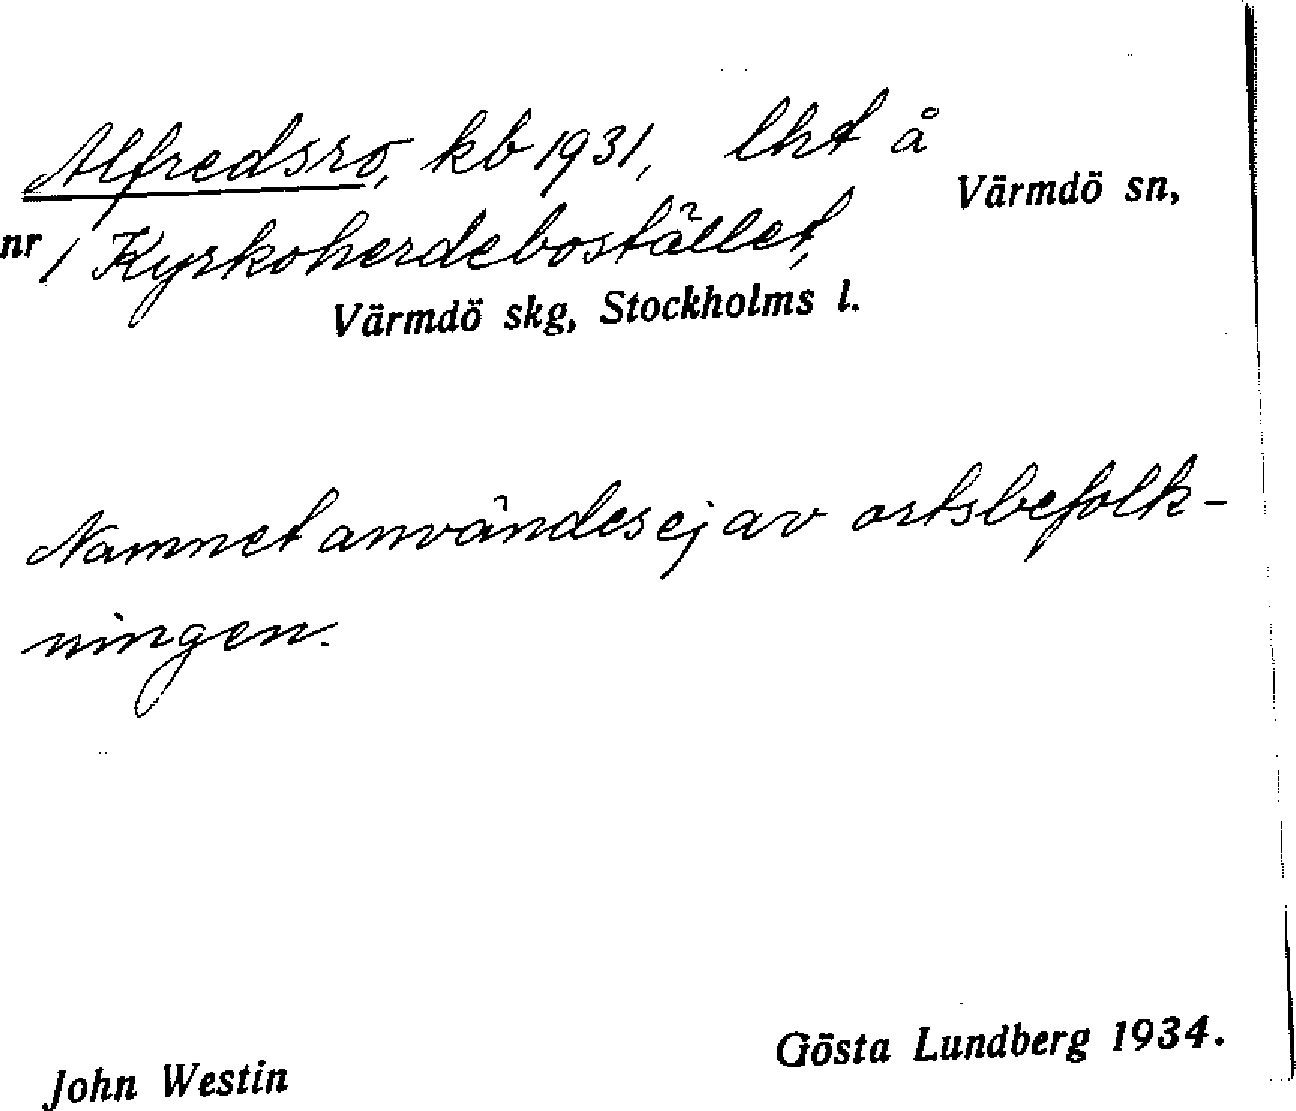 Alfredsro, kb 1931, lht å
Värmdö sn,
nr 1 Kyrkoherdebostället,
Värmdö skg, Stockholms l.
Namnet användes ej av ortsbefolk-
ningen.
Gösta Lundberg 1934.
John Westin